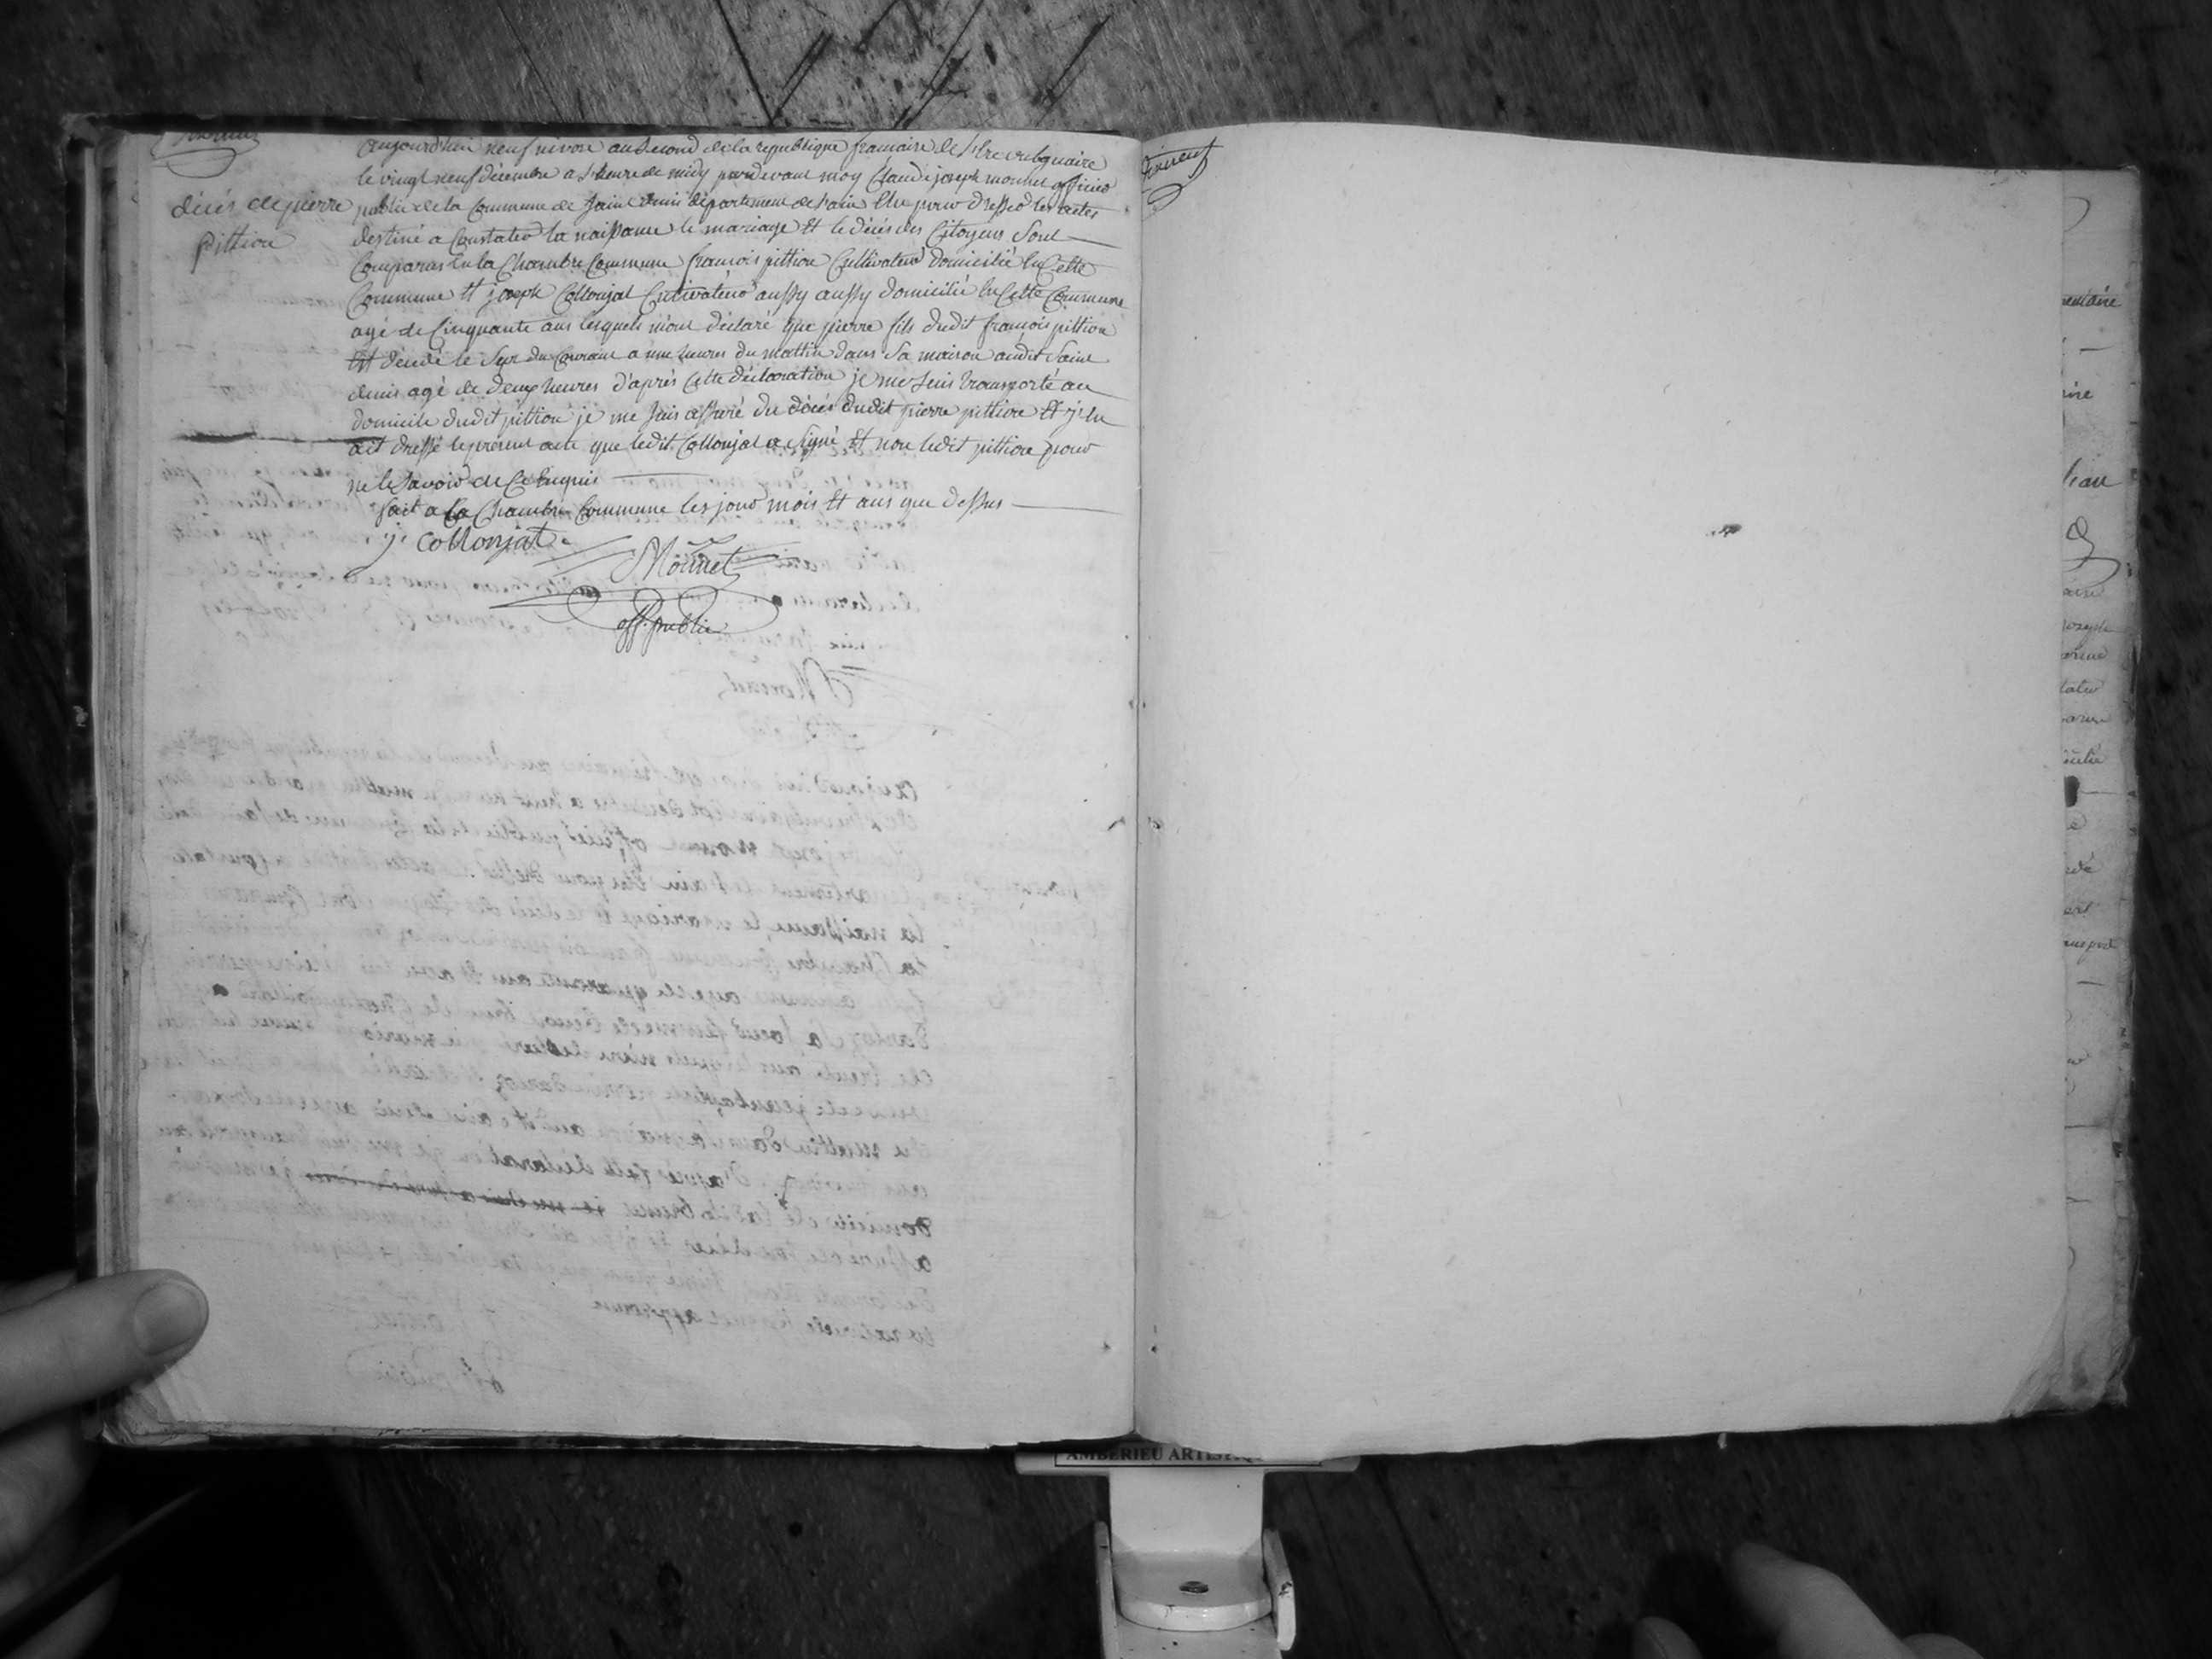 décés de pierre
pittion
aujourd'hui neuf nivose an second de la republique francaise de l'Ere vulguaire
le vingt neuf décembre a l'heure de midy pardevant moy Claude joseph monnet officier
public de la Commune de Saint denis département de l'ain Elu pour dresser les actes
destiné a Constater la naissance le mariage Et le décés des Citoyens Sont
Comparus En la Chambre Commune francois pittion Cultivateur domicilié En Cette
Commune Et joseph Collonjat Cultivateur aussy aussy domicilié En Cette Commune
agé de Cinquante ans lesquels m'ont déclaré que pierre fils dudit francois pittion
Est décédé le Sept du Courant a une heures du mattin dans Sa maison audit Saint
denis agé de deux heures d'aprés Cette déclaration je me suis transporté au
domicile dudit pittion je me suis assuré du décés dudit pierre pittion Et j'En
ait dressé le présent acte que ledit Collonjat a signé Et non ledit pittion pour
ne le Savoir de Ce Enquis
fait a la Chambre Commune les jour mois Et ans que dessus
j. collonjat
Monnet
off. public
AMBERIEU ARTISTIQ